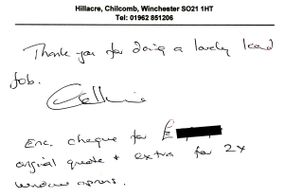 Hillacre, Chilcomb, Winchester SO21 1HT
Tel: 01962 851206
Thank you for doing a lovely lead
job.
Enc. cheque for £
original quote + extra for 2x
window aprons.